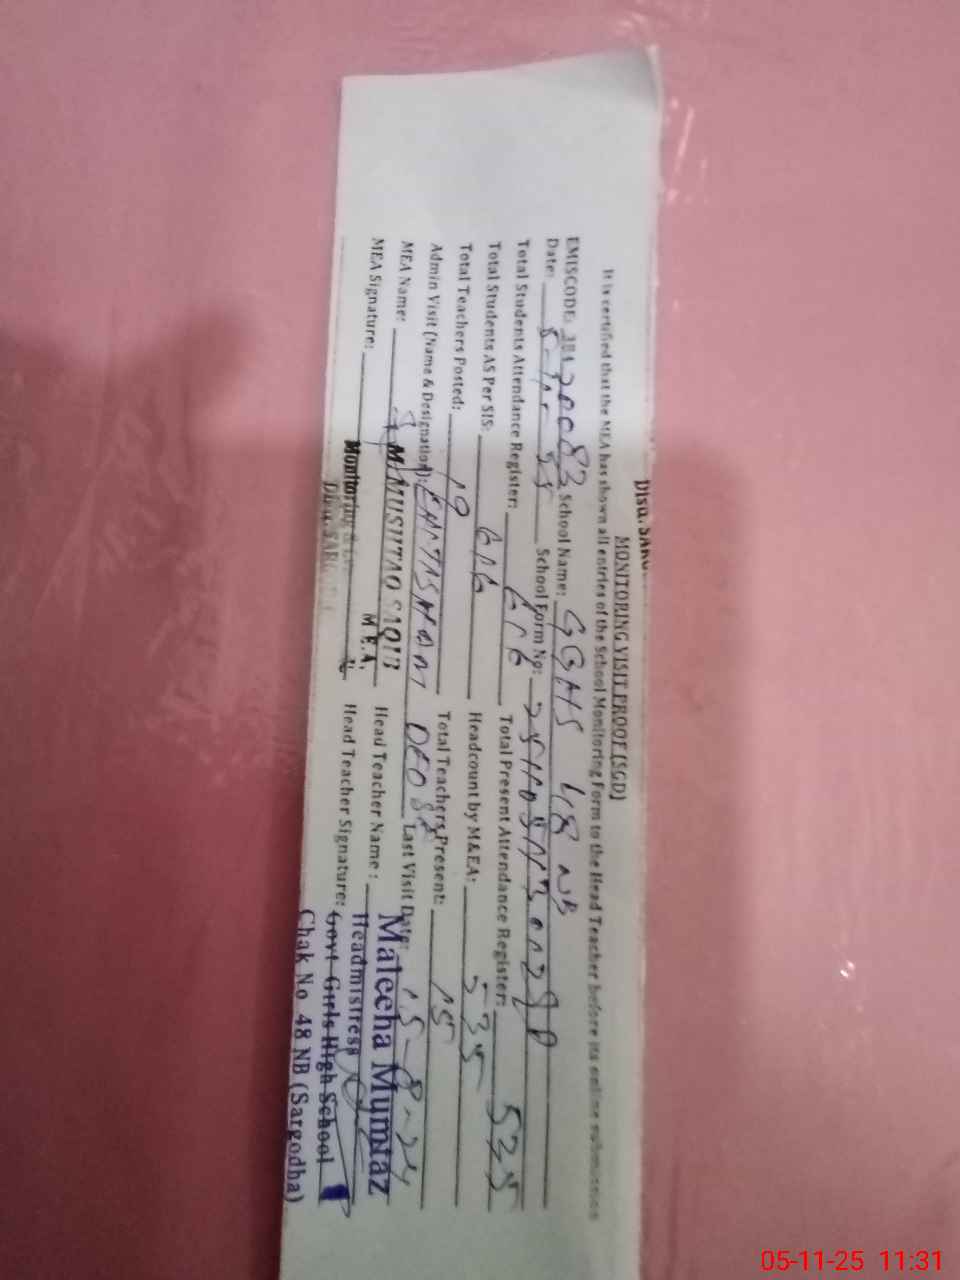 Distt. SARG
MONITORING VISIT PROOF (SGD)
It is certified that the MEA has shown all entries of the School Monitoring Form to the Head Teacher before its online submission
EMISCODE: School Name: GGHS 48 NB
Date: School Form No:
Total Students Attendance Register: Total Present Attendance Register: 535
Total Students AS Per SIS: Headcount by M&EA: 535
Total Teachers Posted: 19 Total Teachers Present: 15
Admin Visit (Name & Designation): DEO SE Last Visit Date:
MEA Name: M. MUSHTAQ SAQIB Head Teacher Name: Maleeha Mumtaz
M.E.A.
MEA Signature: Monitoring & Head Teacher Signature: Headmistress
Govt Girls High School
Chak No 48 NB (Sargodha)
05-11-25 11:31